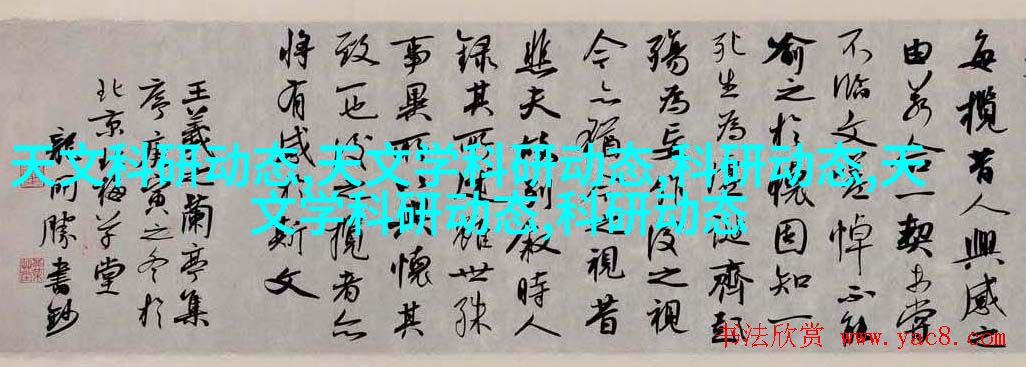 每攬昔人興感之
由若合一契未嘗
不臨文嗟悼不能
喻之於懷固知一
死生為虛誕齊彭
殤為妄作後之視
今亦猶今之視昔
悲夫故列敘時人
錄其所述雖世殊
事異所以興懷其
致一也後之攬者亦
將有感於斯文
王羲之蘭亭集
序庚寅之冬於
北京梅草堂
勝書鈔
天文科研动态,天文学科研动态,科研动态,天
文学科研动态,科研动态
书法欣赏 www.yac8.com